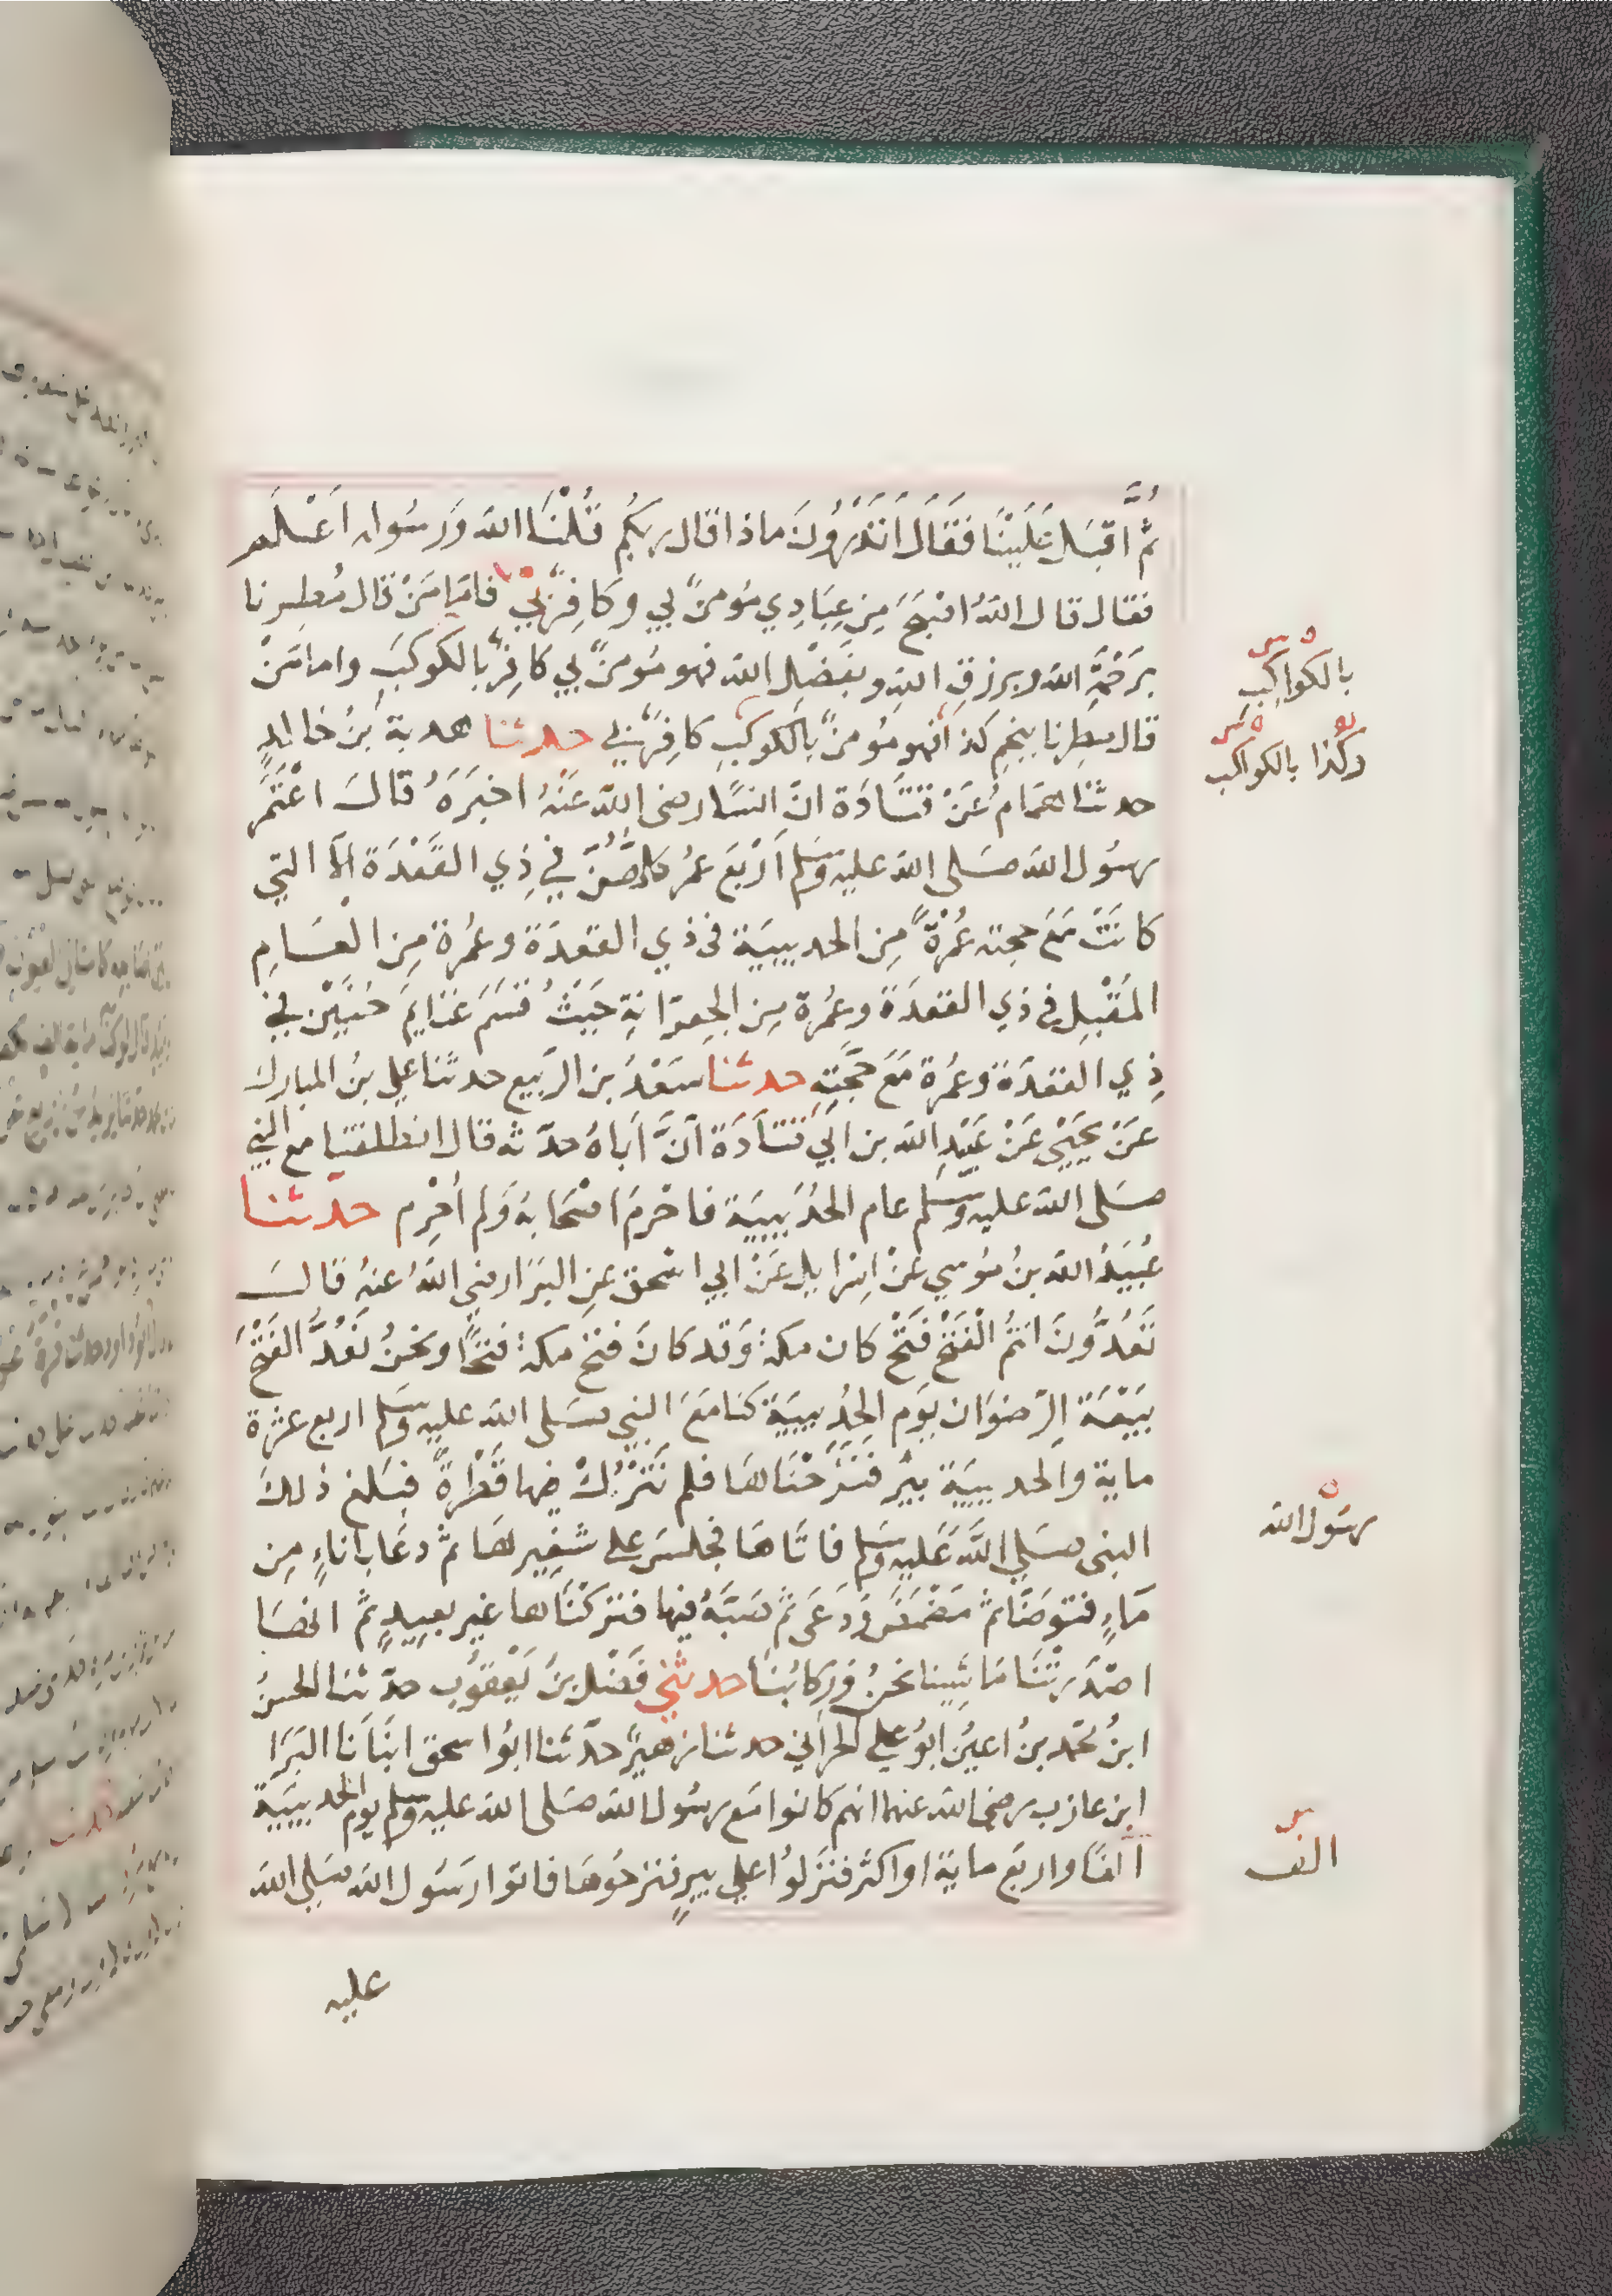 ثُمَّ اَقْبَلَ عَلَيْنَا فَقَالَ اَتَدْرُونَ ماذا قال ربكُم قُلْنَا الله وَرَسُوله اَعْلَم
فقال قال اللهُ اصْبَحَ مِن عِبَادِي مؤمنٌ بي وكافِرٌ بِي فامّا مَنْ قال مُطِرنا
برَحْمَةِ الله وبرزقِ اللهِ وبفَضْلِ الله فهو مؤمنٌ بي كافِرٌ بالكوكبِ واما مَنْ
قال مطِرنا بنجمِ كذا فهو مُومنٌ بالكوكبِ كافِرٌ بي حدثنا هدبة بنُ خالدٍ
حدثنا همّامٌ عَنْ قَتَادَة انّ انسًا رضى الله عَنْهُ اخبَرَهُ قالَ اعْتَمَرَ
رسُول الله صَلى الله عليه وَسَلم اَرْبَعَ عُمرٍ كلهُنَّ في ذِي القَعْدَة الا التي
كانَتْ مَعَ حجته عُمْرَةً مِن الحديبيَة فى ذي القعدَة وعُمرة مِن العَامِ
المُقْبِلِ فى ذي القعدَة وعُمرة مِن الجِعرَانةِ حَيْثُ قسَمَ غنَايمَ حُنَيْنٍ في
ذِي القعدَة وعُمرة مَعَ حَجَّتِهِ حدثنا سَعْدُ بن الرّبيع حدثنا علي بنُ المبارك
عَنْ يحيَى عَنْ عَبْدِ الله بن ابي قَتَادَة اَنَّ اَباهُ حدّثه قال انطلقنا مع النبي
صَلى الله عليه وَسَلم عام الحُدَيبيَة فاحْرمَ اصْحَابهُ وَلم اُحْرِم حدّثنا
عُبَيدُ الله بنُ مُوسي عَنْ اِسْرايل عَنْ ابي اسْحق عنِ البَرَا رضي اللهُ عنهُ قالَ
تَعُدُّونَ انتُمُ الْفَتْحَ فَتْحَ مكة وَقد كانَ فتحُ مكة فتحًا ونحنُ نَعُدُّ الفَتْحَ
بَيْعَة الرّضوَان يَوم الحُدَيبيَة كنا مَعَ النبي صَلى الله عليه وَسَلم اربع عشرة
ماية والحديبيَة بيرٌ فنَزَحْنَاهَا فلم نَتْرُكْ فيها قَطْرَةً فبَلغ ذلكَ
النبى صَلي اللَّه عَليه وَسَلم فاتَاهَا فجلسَ علي شفِيرهَا ثم دعَا باناءٍ مِن
مَاءٍ فتوضّا ثم مَضْمَضَ وَدَعَى ثم صَبَّهُ فيها فتركْنَاها غير بعيدٍ ثم انها
اصْدَرتْنَا مَا شِينا نحنُ وَركابُنا حدثني فَضْل بنُ يَعْقوُب حدّثنا الحسنُ
ابنُ محمّد بنُ اعينُ ابُو علي الحراني حدثنا زهيرٌ حدّثنا ابُوا سحق انبَانا البَرَا
ابن عازب رضى الله عنهما انهم كانوا مَع رسُول الله صَلى الله عليه وسَلم يوم الحديبيَة
الفًا واربعَ ماية او اكثر فنزلوُا علي بيرٍ فنزحوُهَا فاتوا رَسُول الله صَلي الله
عليه
بالكواكبِ
وكذا بالكواكب
رسُول الله
الف